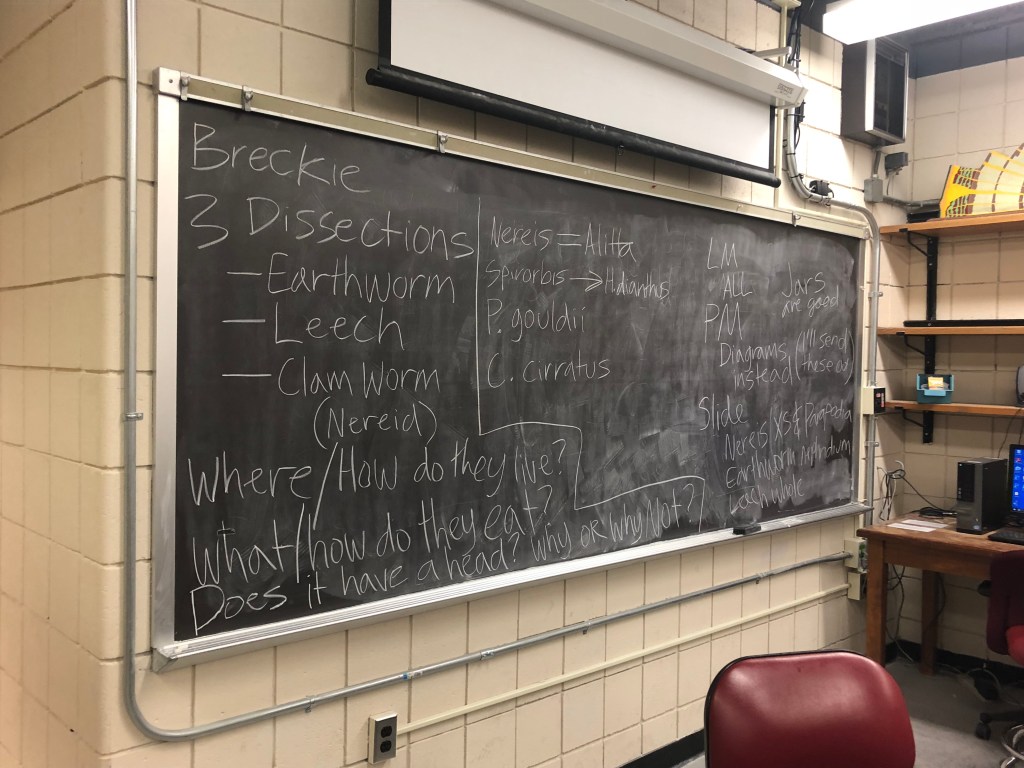 Breckie
3 Dissections
- Earthworm
- Leech
- Clam Worm
(Nereid)
Where/How do they live?
What/how do they eat?
Does it have a head? Why or Why Not?
Nereis = Alitta
Spirorbis →
P. gouldii
C. cirratus
LM
ALL Jars
are good
PM
Diagrams (I'll send
instead these out)
Slide
Nereis xs &
Earthworm
Leech whole